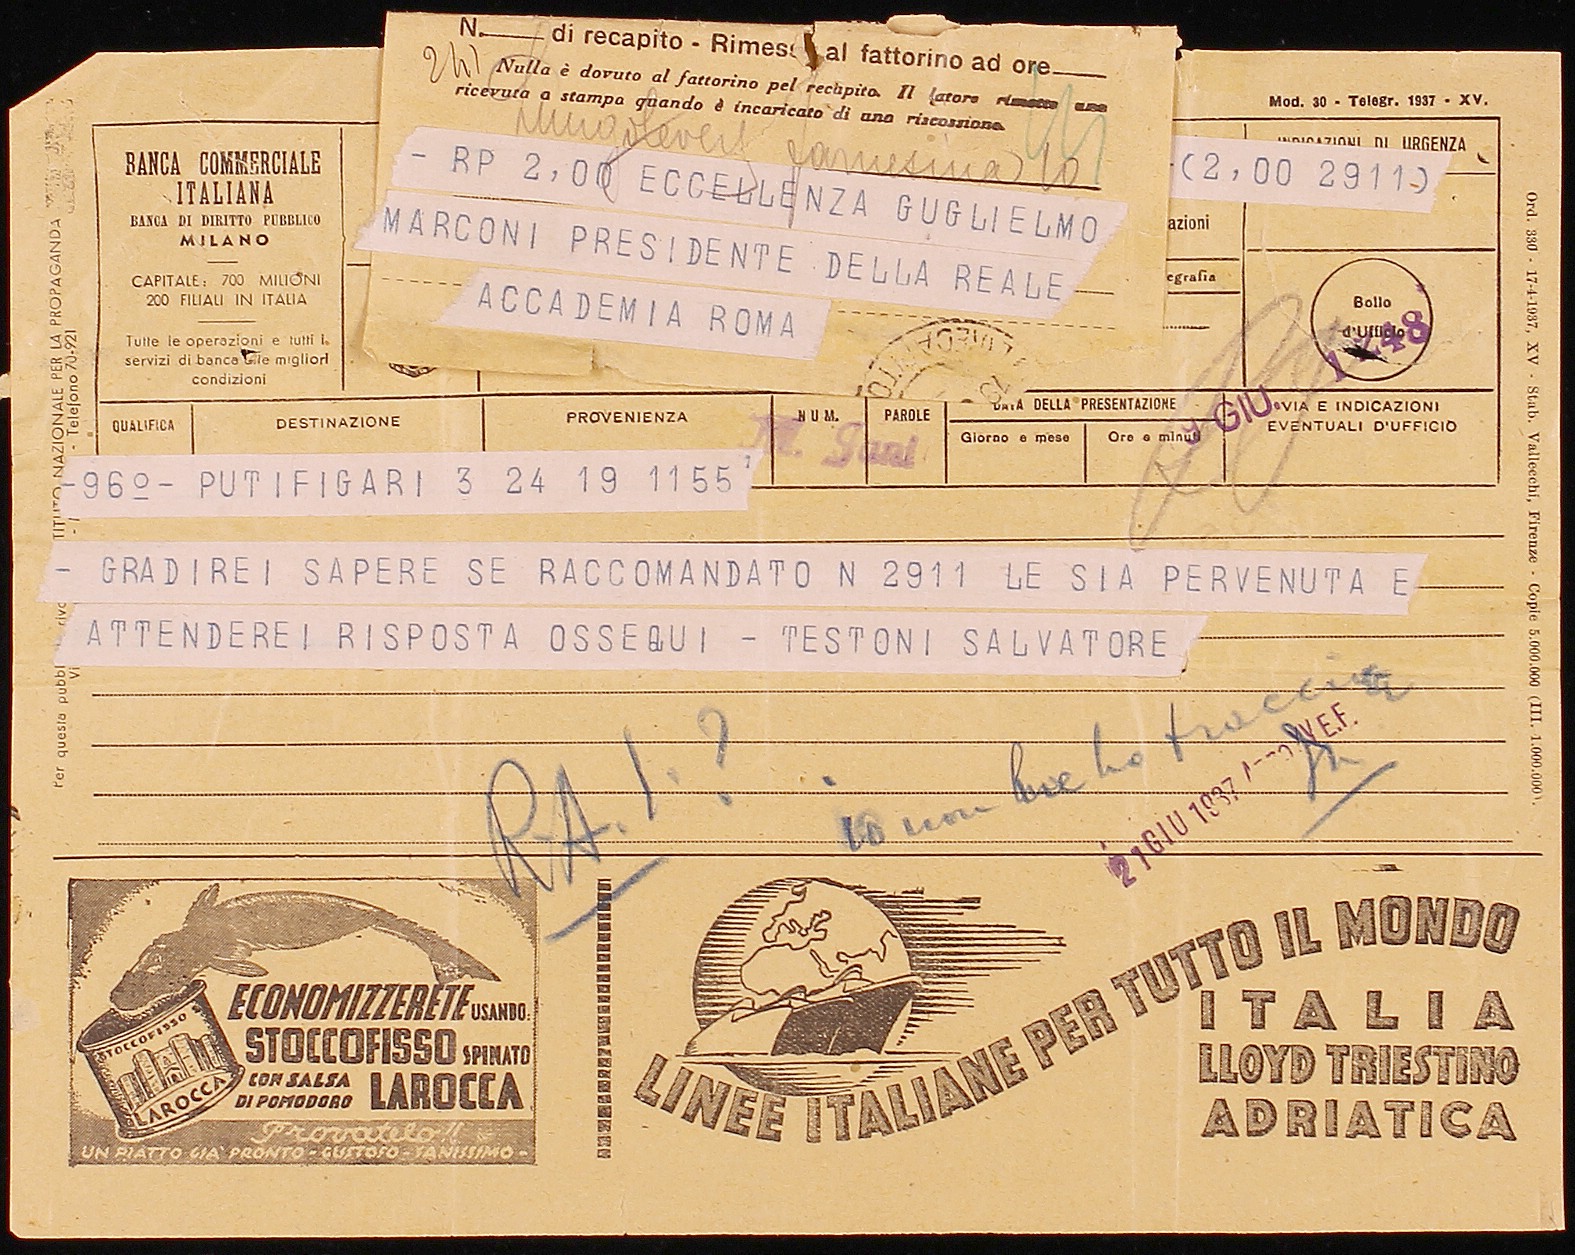 N. di recapito - Rimess al fattorino ad ore
Nulla è dovuto al fattorino pel recapito. Il latore rimette una
ricevuta a stampa quando è incaricato di una riscossione.
Lungotevere Farnesina 10
- RP 2,00 ECCELLENZA GUGLIELMO
MARCONI PRESIDENTE DELLA REALE
ACCADEMIA ROMA
Mod. 30 - Telegr. 1937 - XV.
INDICAZIONI DI URGENZA
-(2,00 2911)
azioni
egrafia
Bollo
d'Ufficio
BANCA COMMERCIALE
ITALIANA
BANCA DI DIRITTO PUBBLICO
MILANO
CAPITALE: 700 MILIONI
200 FILIALI IN ITALIA
Tutte le operazioni e tutti i
servizi di banca alle migliori
condizioni
QUALIFICA
DESTINAZIONE
PROVENIENZA
NUM.
PAROLE
DATA DELLA PRESENTAZIONE
Giorno e mese
Ore e minuti
VIA E INDICAZIONI
EVENTUALI D'UFFICIO
GIU.
-96º- PUTIFIGARI 3 24 19 1155
- GRADIREI SAPERE SE RACCOMANDATO N 2911 LE SIA PERVENUTA E
ATTENDEREI RISPOSTA OSSEQUI - TESTONI SALVATORE
R.A.I.?
io non ho traccia
21 GIU 1937 V E.F.
TITUTO NAZIONALE PER LA PROPAGANDA
- Telefono 70-921
Per questa pubbl
Ord. 330 - 17-4-1937, XV - Stab. Vallecchi, Firenze - Copie 5.000.000 (III. 1.000.000).
STOCCOFISSO
LAROCCA
ECONOMIZZERETE USANDO:
STOCCOFISSO SPINATO
CON SALSA
DI POMODORO LAROCCA
Provatelo!!
UN PIATTO GIA' PRONTO - GUSTOSO - SANISSIMO -
LINEE ITALIANE PER TUTTO IL MONDO
ITALIA
LLOYD TRIESTINO
ADRIATICA